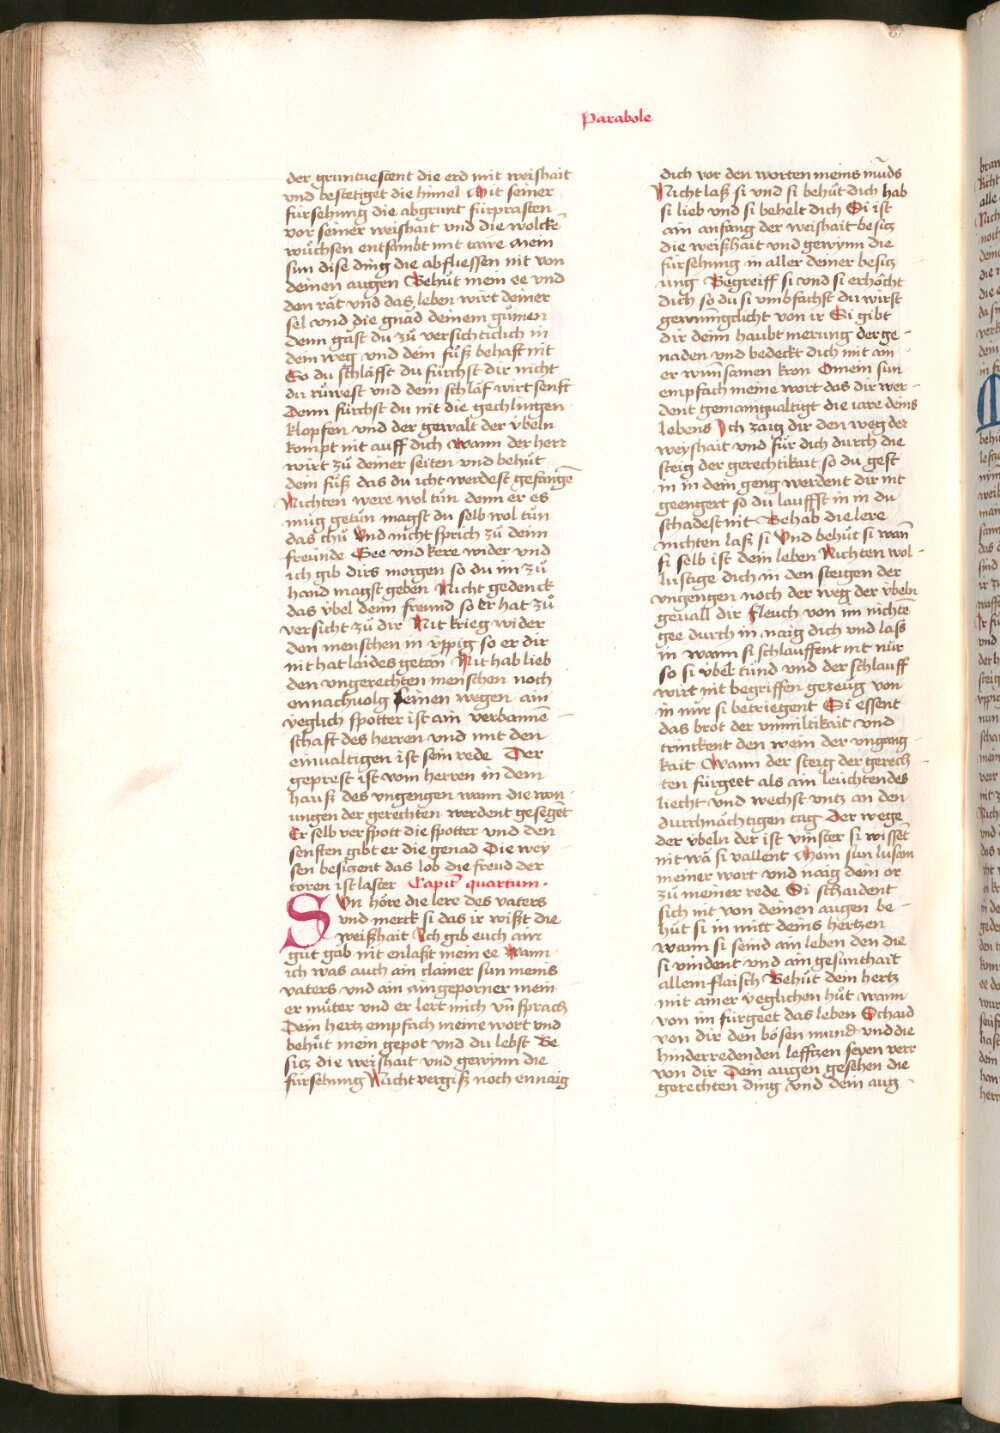 Parabole
der gruntuestent die erd mit weishait
vnd bestetiget die himel Mit seiner
fürsehung die abgrunt fürprasten
vor seiner weishait vnd die wolckē
wüchsen entsambt mit tawe Mein
sun dise ding die abfliessen nit von
deinen augen Behüt mein ee vnd
den rät vnd das leben wirt deiner
sel vnd die gnad deinem gůmen
denn gäst du zů versichticlich in
dein weg vnd dein fůß behaft nit
So du schläffst du fürchst dir nicht
du růwest vnd dein schläf wirt senft
Denn fürchst du nit die gechlingen
klopfen vnd der gewalt der vbeln
kompt nit auff dich Wann der herr
wirt zů deiner seiten vnd behüt
dein fůß das du icht werdest gefangē
Nichten were wol tůn denn er es
müg getůn magst du selb wol tůn
das thů Vnd nicht sprich zů deim
freunde Gee vnd kere wider vnd
ich gib dirs morgen so du im zů
hand magst geben Nicht gedenck
das vbel deim freund so er hat zů
versicht zů dir Nit krieg wider
den menschen in vppig so er dir
nit hat laides getän Nit hab lieb
den vngerechten menschen noch
ennachuolg seinen wegen ain
yeglich spotter ist ain verbannē
schaft des herren vnd mit den
einualtigen ist sein rede Der
geprest ist vom herren in dem
hauß des vngengen wann die won
ungen der gerechten werdent gesegēt
Er selb verspott die spotter vnd den
senften gibt er die genad Die wey
sen besitzent das lob die freud der
toren ist laster Capitꝭ quartum.
SVn höre die lere des vaters
vnd merck si das ir wißt die
weißhait Ich gib euch ain
gůt gäb nit enlaßt mein ee Wann
ich was auch ain clainer sun meins
vaters vnd ain aingeporner mein
er můter vnd er lert mich vn̄ sprach
Dein hertz empfach meine wort vnd
behüt mein gepot vnd du lebst Be
sitz die weishait vnd gewynn die
fürsehung Nicht vergiß noch ennaig
dich vor den worten meins mūds
Nicht laß si vnd si behüt dich hab
si lieb vnd si behelt dich Si ist
ain anfang der weishait besitz
die weißhait vnd gewynn die
fürsehung in aller deiner besitz
ung Begreiff si vnd si erhöcht
dich so du si vmbfächst du wirst
gewunnglicht von ir Si gibt
dir deim haubt merung der ge
naden vnd bedeckt dich mit ain
er wunnsamen kron O mein sun
empfach meine wort das dir wer
dent gemanigualtigt die iare deins
lebens Ich zaig dir den weg der
weyshait vnd für dich durch die
steig der gerechtikait so du gest
in in dein geng werdent dir nit
geengert so du lauffst in in du
schadest nit Behab die lere
nichten laß si Vnd behüt si wan̄
si selb ist dein leben Nichten wol
lustige dich in den steigen der
vngengen noch der weg der vbeln
geuall dir Fleuch von im nichtē
gee durch in naig dich vnd lass
in wann si schlauffent nit nür
so si vbel tünd vnd der schlauff
wirt nit begriffen gezeug von
in nür si betriegent Si essent
das brot der vnmiltikait vnd
trinckent den wein der vngang
kait Wann der steig der gerech
ten fürgeet als ain leuchtendes
liecht vnd wechst vntz an den
durchnächtigen tag Der wege
der vbeln der ist vinster si wissēt
nit wä si vallent Mein sun lusam
meiner wort vnd naig dein or
zů meiner rede Si schaident
sich nit von deinen augen be
hüt si in mitt deins hertzen
wann si seind ain leben den die
si vindent vnd ain gesunthait
allem flaisch Behüt dein hertz
mit ainer yeglichen hůt wann
von im fürgeet das leben Schaid
von dir den bösen mund vnd die
hinderredenden leffzen seyen verr
von dir Dein augen gesehen die
gerechten ding vnd dein aug